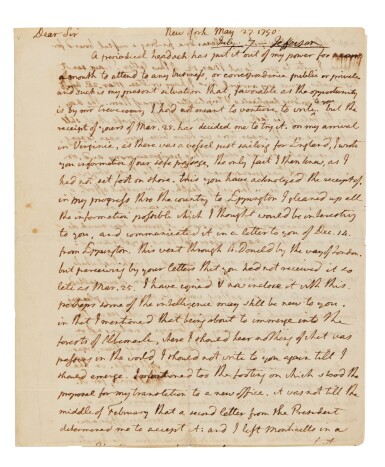 Dear Sir New York May 27. 1790.
A periodical headach has put it out of my power for
a month to attend to any business, or correspondence public or private
and such is my present situation that favorable as the opportunity
is by mr Crevecoeur, I had not meant to venture to write to you but the
receipt of yours of Mar. 25. has decided me to try it. on my arrival
in Virginia, as there was a vessel just sailing for England, I wrote
you information of our safe passage, the only fact I then knew, as I
had not set foot on shore. this you have acknoleged the receipt of.
in my progress thro the country to Eppington I gleaned up all
the information possible which I thought would be interesting
to you, and communicated it in a letter to you of Dec. 14.
from Eppington. this went through mr Donald by the way of London.
but perceiving by your letters that you had not received it so
late as Mar. 25. I have copied & now inclose it with this.
perhaps some of the intelligence may still be new to you.
in that I mentioned that being about to immerge into the
forests of Albemarle, where I should hear nothing of what was
passing in the world, I should not write to you again till I
should emerge. I mentioned too the footing on which stood the
proposal for my translation to a new office. it was not till the
middle of February that a second letter from the President
determined me to accept it: and I left Monticello in a